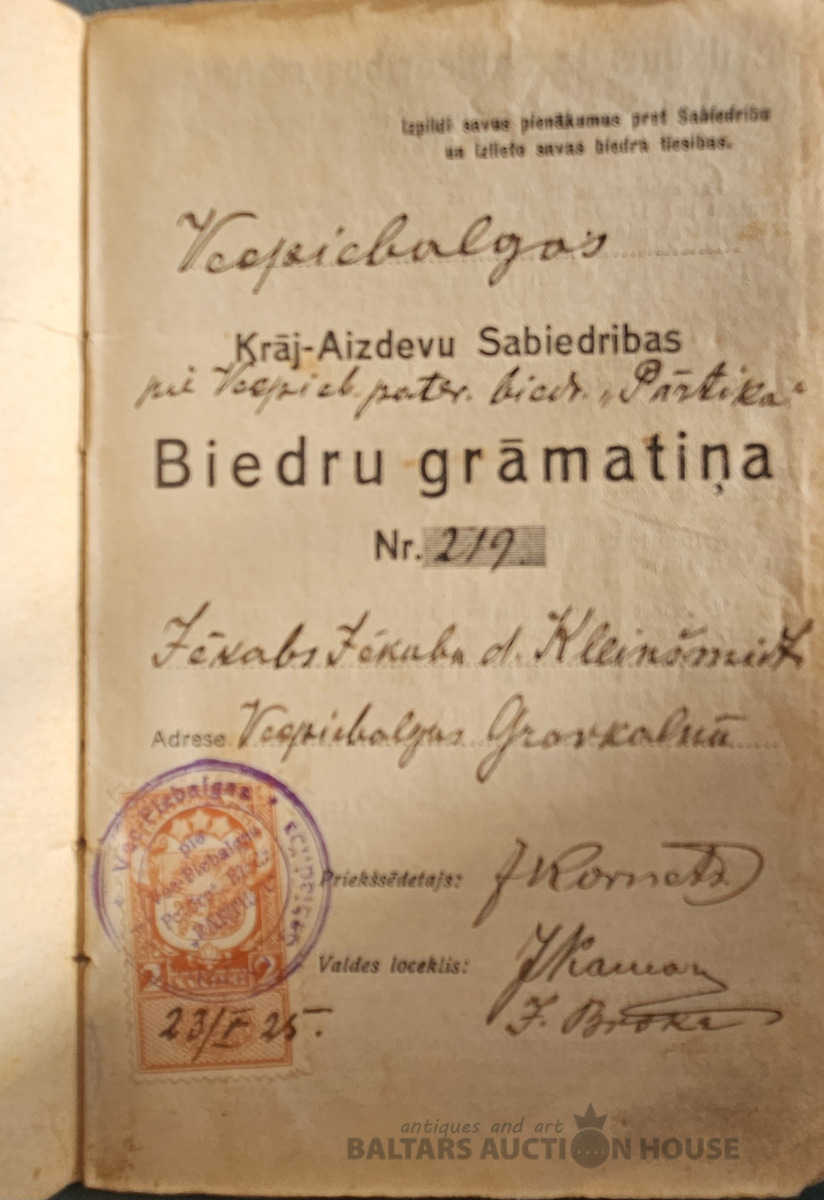 Izpildi savus pienākumus pret Sabiedrību
un izlieto savas biedra tiesības.
Vecpiebalgas
Krāj-Aizdevu Sabiedrības
pie Vecpieb. pater. biedr. „Pārtika“
Biedru grāmatiņa
Nr. 219
Jēkabs Jēkaba d. Kleinšmidt
Adrese Vecpiebalgas Gravkalnā
Vec-Piebalgas
pie
Vec-Piebalgas
Priekšsēdetajs: J Kornets
Valdes loceklis:
2 2
23/I 25.
antiques and art
BALTARS AUCTION HOUSE